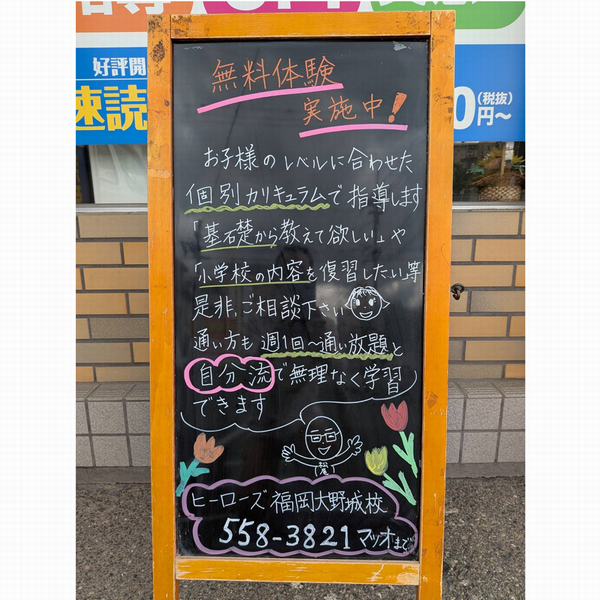 好評開
速読
0 (税抜)
円～
無料体験
実施中!
お子様のレベルに合わせた
個別カリキュラムで指導します
「基礎から教えて欲しい」や
「小学校の内容を復習したい」等
是非、ご相談下さい
通い方も週1回～通い放題と
自分流で無理なく学習
できます
ヒーローズ福岡大野城校
558-3821 マツオまで